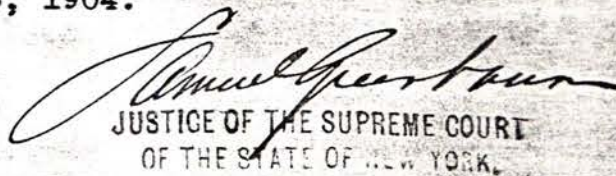 , 1904.
Samuel Greenbaum
JUSTICE OF THE SUPREME COURT
OF THE STATE OF NEW YORK.